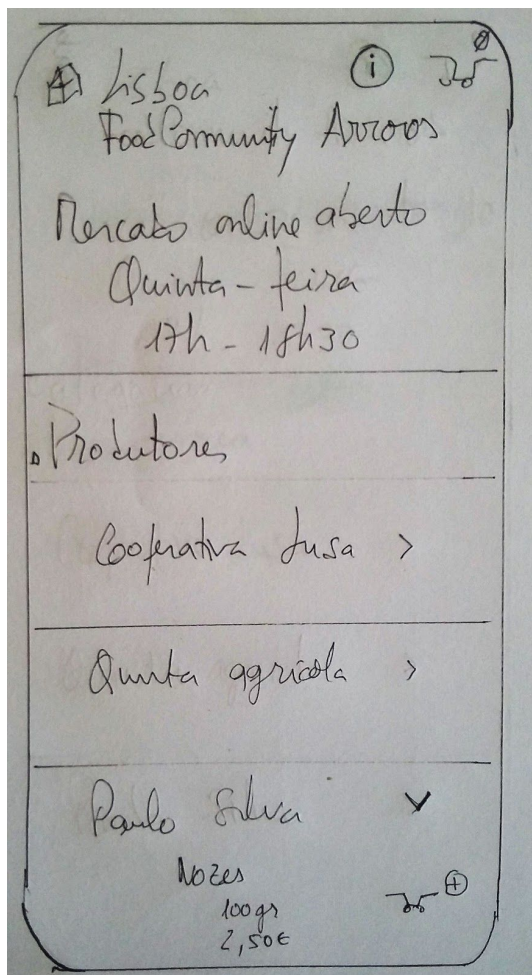 Lisboa
Food Community Arroios
Mercado online aberto
Quinta-feira
17h - 18h30
Produtores
Cooperativa Lusa >
Quinta agrícola >
Paulo Silva
Nozes
100gr
2,50€